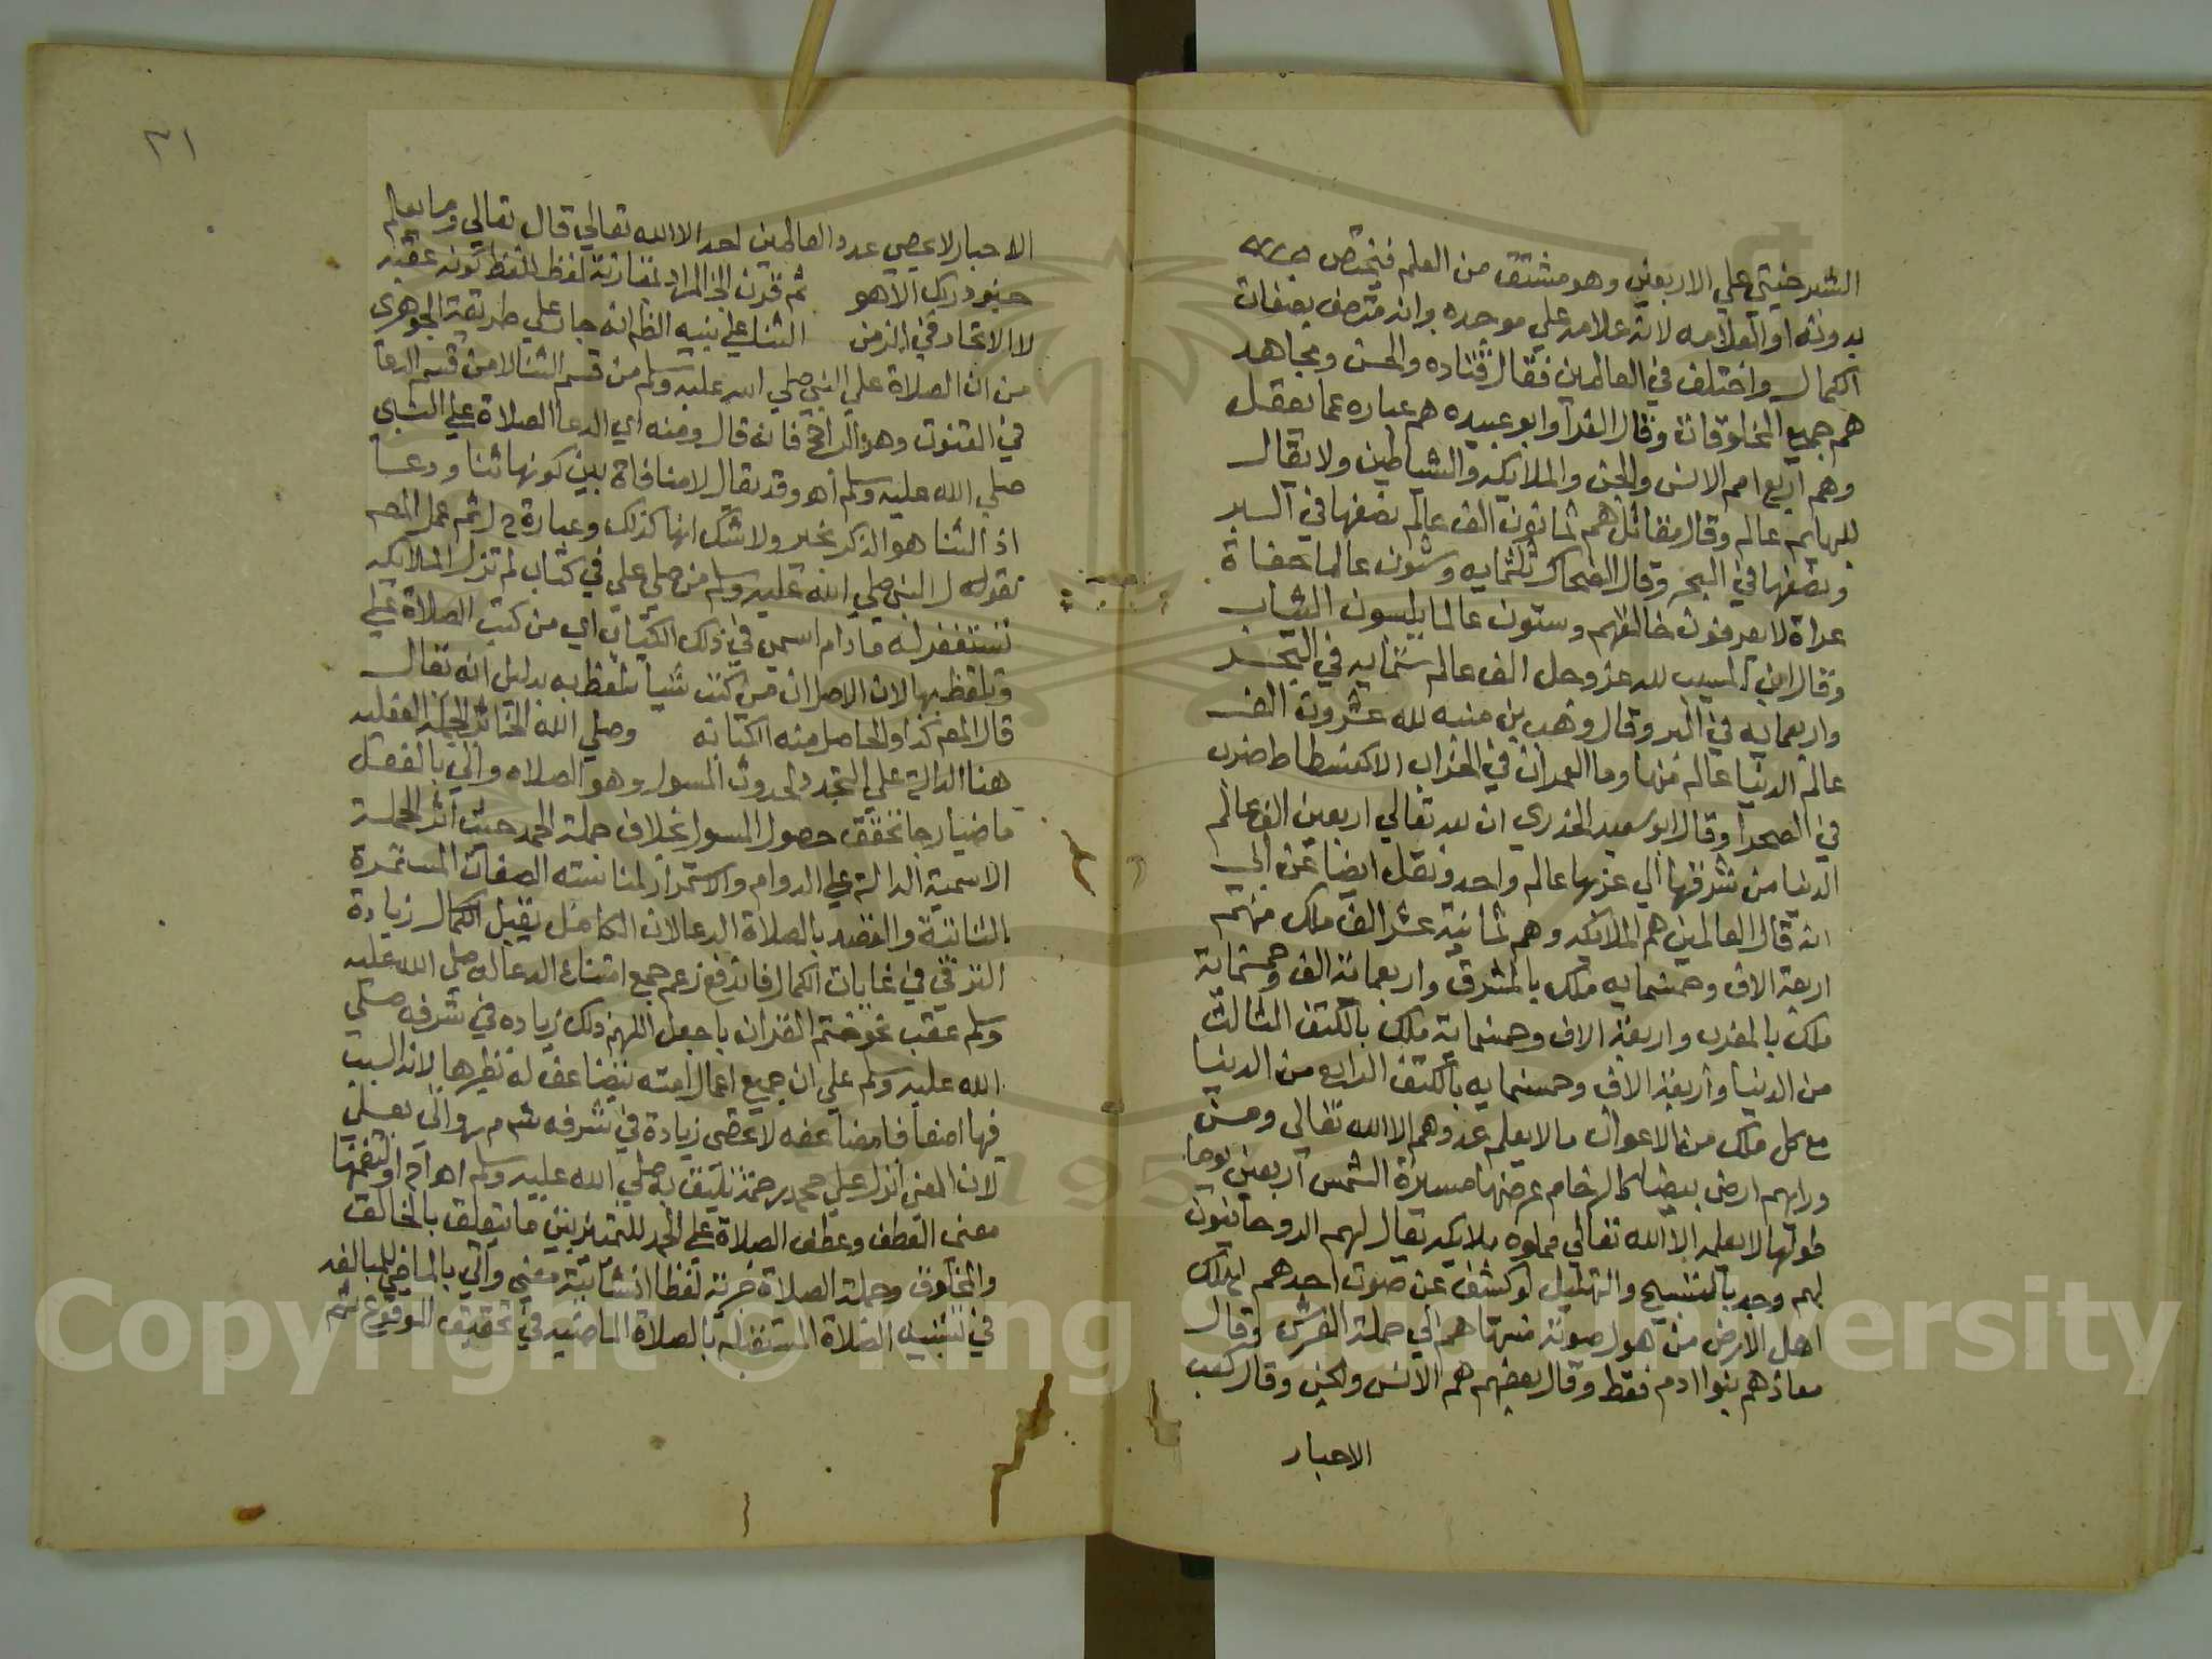 الشبرخيتي علي الاربعين وهو مشتق من العلم فيختص
بدونه او العلامه لانه علامه علي موجده وانه متصف بصفات
الكمال واختلف في العالمين فقال قتاده والحسن ومجاهد
هم جميع المخلوقات وقال الفرآ وابو عبيده هم عباره عما يعقل
وهم اربع امم الانس والجن والملايكه والشياطين ولا يقال
للبهايم عالم وقال مقاتل هم ثمانون الف عالم نصفها في البر
ونصفها في البحر وقال الضحاك ثلثمايه وستون عالما حفاة
عراة لا يعرفون خالقهم وستون عالما يلبسون الثياب
وقال ابن المسيب لله عز وجل الف عالم ستمايه في البحر
واربعمايه في البر وقال وهب بن منبه لله عشرون الف
عالم الدنيا عالم منها وما العمران في الخراب الا كفسطاط ضرب
في الصحرا وقال ابو سعيد الخدري ان لله تعالي اربعين الف عالم
الدنيا من شرقها الي غربها عالم واحد ونقل ايضا عن ابي
انه قال العالمين هم الملايكه وهم ثمانية عشر الف ملك منهم
اربعة الاف وخمسمايه ملك بالمشرق واربعة الف وخمسماية
ملك بالمغرب واربعة الاف وخمسماية ملك بالكتف الثالث
من الدنيا واربعة الاف وخمسمايه بالكتف الرابع من الدنيا
مع كل ملك من الاعوان ما لا يعلم عددهم الا الله تعالى ومن
ورايهم ارض بيضا كالرخام عرضها مسيرة الشمس اربعين يوما
طولها لا يعلمه الا الله تعالي مملوه ملايكه يقال لهم الروحانيون
لهم وجد بالتسبيح والتهليل لو كشف عن صوت احدهم لهلك
اهل الارض من هول صوته منتهاهم الي حملة العرش وقال
معاذ هم بنوا ادم فقط وقال بعضهم هم الانس والجن وقال كعب
الاحبار
٣١
الاحبار لا يحصي عدد العالمين احد الا الله تعالي قال تعالي وما يعلم
جنود ربك الا هو ثم قرن الخ المراد بمقارنة لفظ للفظ كونه عقبه
لا الاتحاد في الزمن الثنا علي نبيه الظ انه جار علي طريقة الجوهري
من ان الصلاة علي النبي صلي الله عليه وسلم من قسم الثنا لا من قسم الدعا
في القنوت وهو الراجح فانه قال ومنه اي الدعا الصلاة علي النبي
صلي الله عليه وسلم اهـ وقد يقال لا منافاة بين كونها ثنا ودعا
اذ الثنا هو الذكر بخير ولا شك انها كذلك وعبارة ثم عمل المص
بقوله النبي صلي الله عليه وسلم من صلي علي في كتاب لم تزل الملايكه
تستغفر له ما دام اسمي في ذلك الكتاب اي من كتب الصلاة علي
وتلفظ بها لان الاصل ان من كتب شيأ تلفظ به بدليل انه يقال
قال المص كذا والحاصل منه الكتابه وصلي الله اختار الجملة الفعليه
هنا الدالة علي التجدد لحدوث المسول وهو الصلاه واتي بالفعل
ماضيا رجا تحقق حصول المسول بخلاف جملة الحمد حيث اثر الجملة
الاسمية الدالة علي الدوام والاستمرار لمناسبته الصفات المستمرة
الثابتة والقصد بالصلاة الدعا لان الكامل يقبل الكمال زيادة
الترقي في غايات الكمال فاندفع زعم جمع امتناع الدعا له صلي الله عليه
وسلم عقب نحو ختم القران باجعل اللهم ذلك زياده في شرفه صلي
الله عليه وسلم علي ان جميع اعمال امته يتضاعف له نظيرها لانه السبب
فيها اضعافا مضاعفه لا تحصى زيادة في شرفه واتي بعلي
لان المعني انزل علي محمد رحمة تليق به صلي الله عليه وسلم اهـ او لتضمنها
معني العطف وعطف الصلاة علي الحمد للتمييز بين ما يتعلق بالخالق
والمخلوق وجملة الصلاة خبرية لفظا انشائية معني واتي بالماضي للمبالغه
في تشبيه الصلاة المستقبله بالصلاة الماضيه في تحقيق الوقوع ثم
Copyright © King Saud University